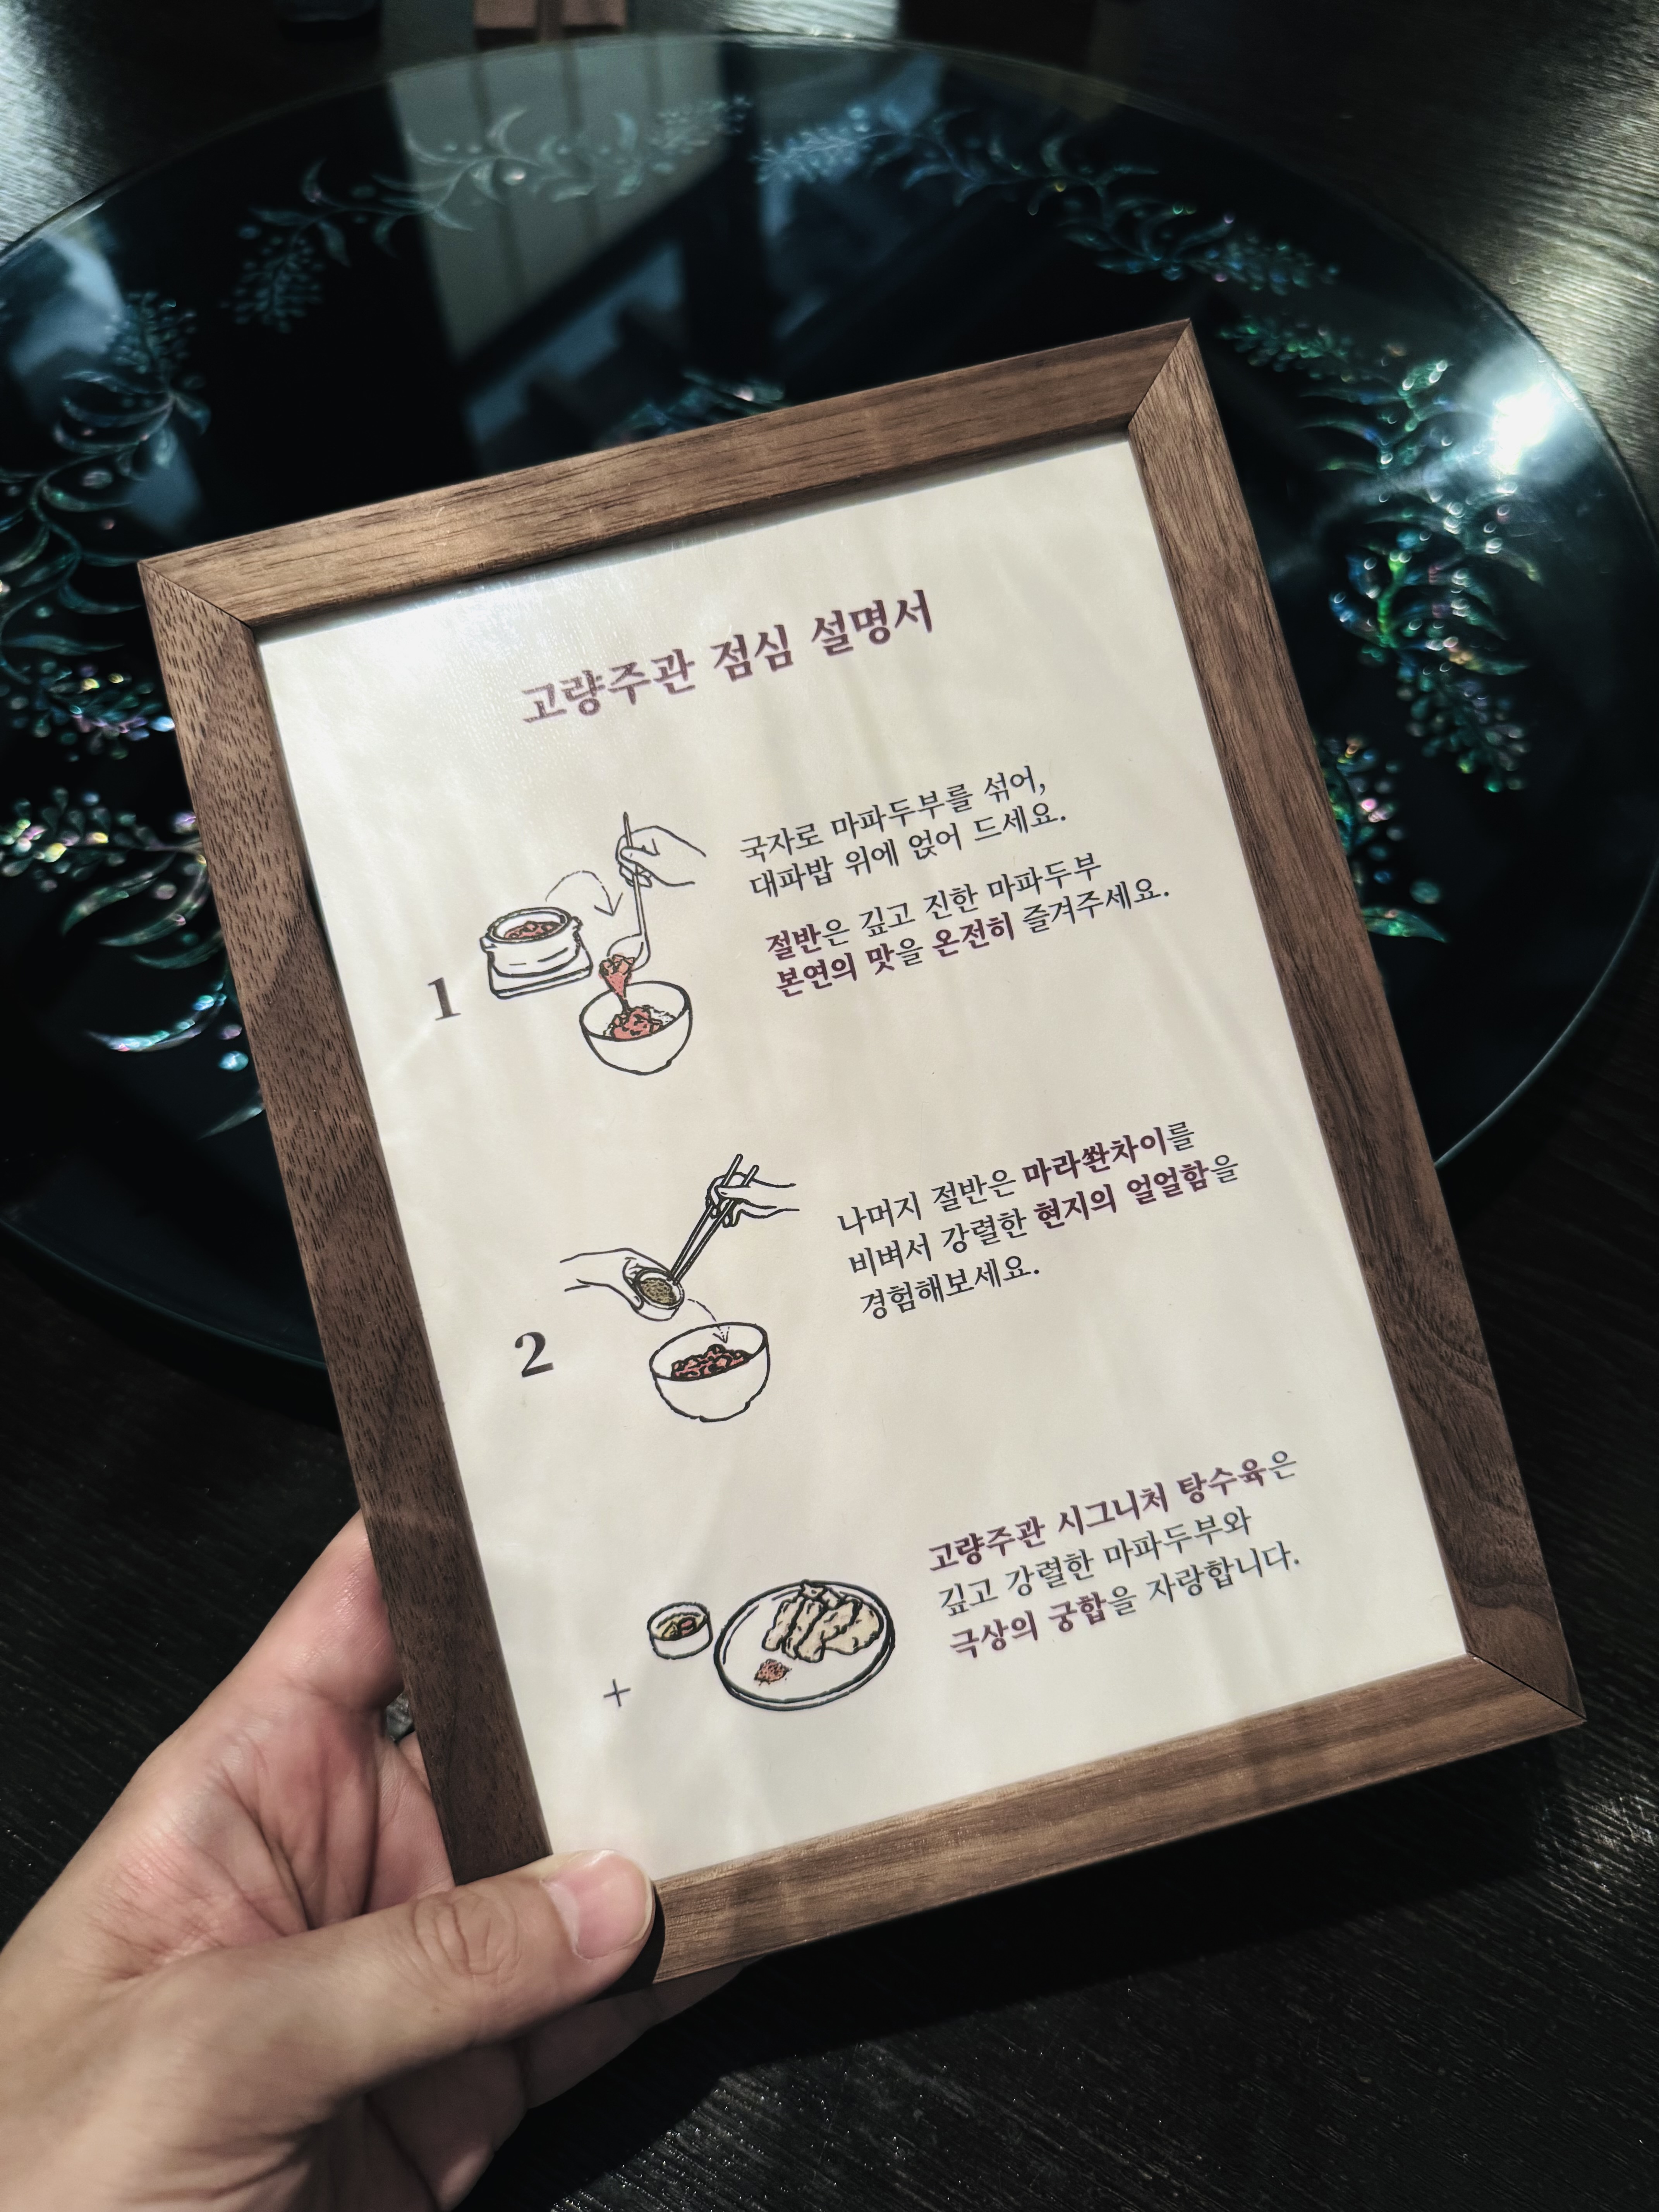 고량주관 점심 설명서
1
국자로 마파두부를 섞어,
대파밥 위에 얹어 드세요.
절반은 깊고 진한 마파두부
본연의 맛을 온전히 즐겨주세요.
2
나머지 절반은 마라쏸차이를
비벼서 강렬한 현지의 얼얼함을
경험해보세요.
+
고량주관 시그니처 탕수육은
깊고 강렬한 마파두부와
극상의 궁합을 자랑합니다.